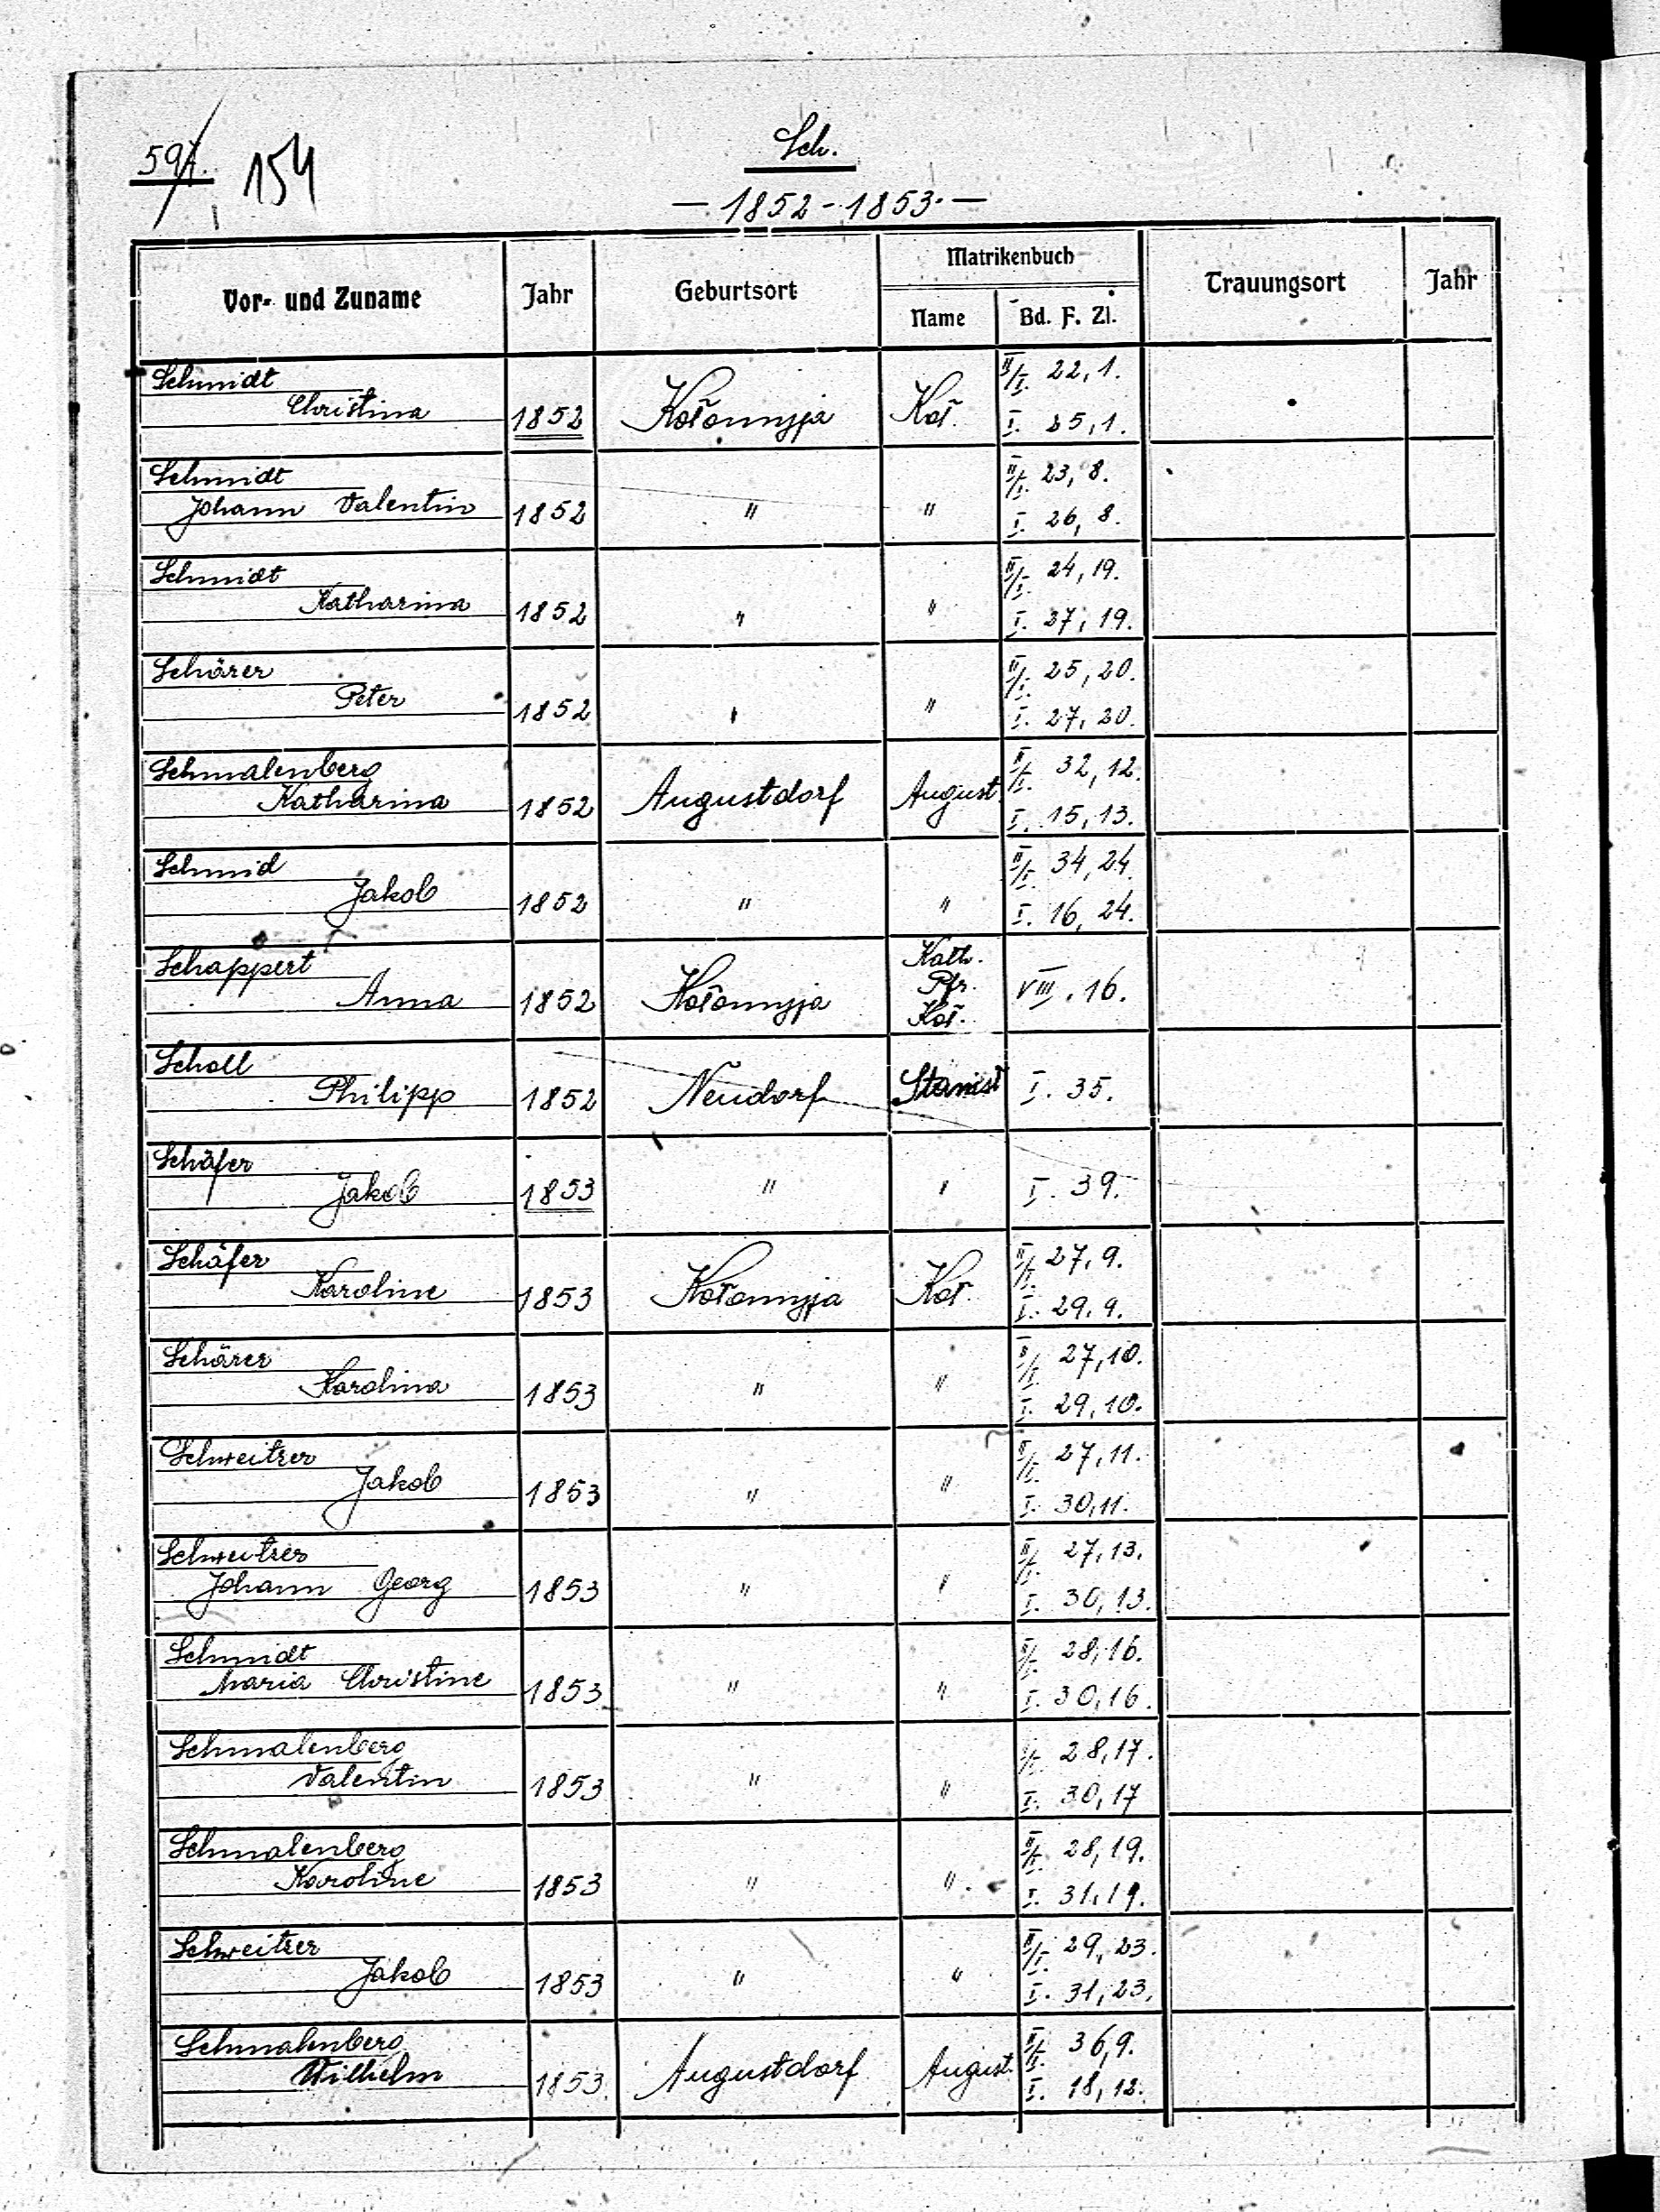 597. 154
Sch.
— 1852 - 1853. —
Vor- und Zuname Jahr Geburtsort Matrikenbuch Trauungsort Jahr
Name Bd. F. Zl.
Schmidt II/I. 22,1.
Christina 1852 Kołomyja Koł. I. 25,1.
Schmidt II/I. 23,8.
Johann Valentin 1852 " " I. 26,8.
Schmidt II/I. 24,19.
Katharina 1852 " " I. 27,19.
Schärer II/I. 25,20.
Peter 1852 " " I. 27,20.
Schmalenberg II/I. 32,12.
Katharina 1852 Augustdorf August. I. 15,13.
Schmid II/I. 34,24.
Jakob 1852 " " I. 16,24.
Schappert Kath.
Anna 1852 Kołomyja Pfr. VIII. 16.
Koł.
Scholl
Philipp 1852 Neudorf Stanisł I. 35.
Schäfer
Jakob 1853 " " I. 39.
Schäfer II/I. 27,9.
Karoline 1853 Kołomyja Koł. I. 29,9.
Schärer II/I. 27,10.
Karolina 1853 " " I. 29,10.
Schweitzer II/I. 27,11.
Jakob 1853 " " I. 30,11.
Schweitzer II/I. 27,13.
Johann Georg 1853 " " I. 30,13.
Schmidt II/I. 28,16.
Maria Christine 1853 " " I. 30,16.
Schmalenberg II/I. 28,17.
Valentin 1853 " " I. 30,17
Schmalenberg II/I. 28,19.
Karoline 1853 " " I. 31,19.
Schweitzer II/I. 29,23.
Jakob 1853 " " I. 31,23.
Schmalenberg II/I. 36,9.
Wilhelm 1853 Augustdorf August. I. 18,12.